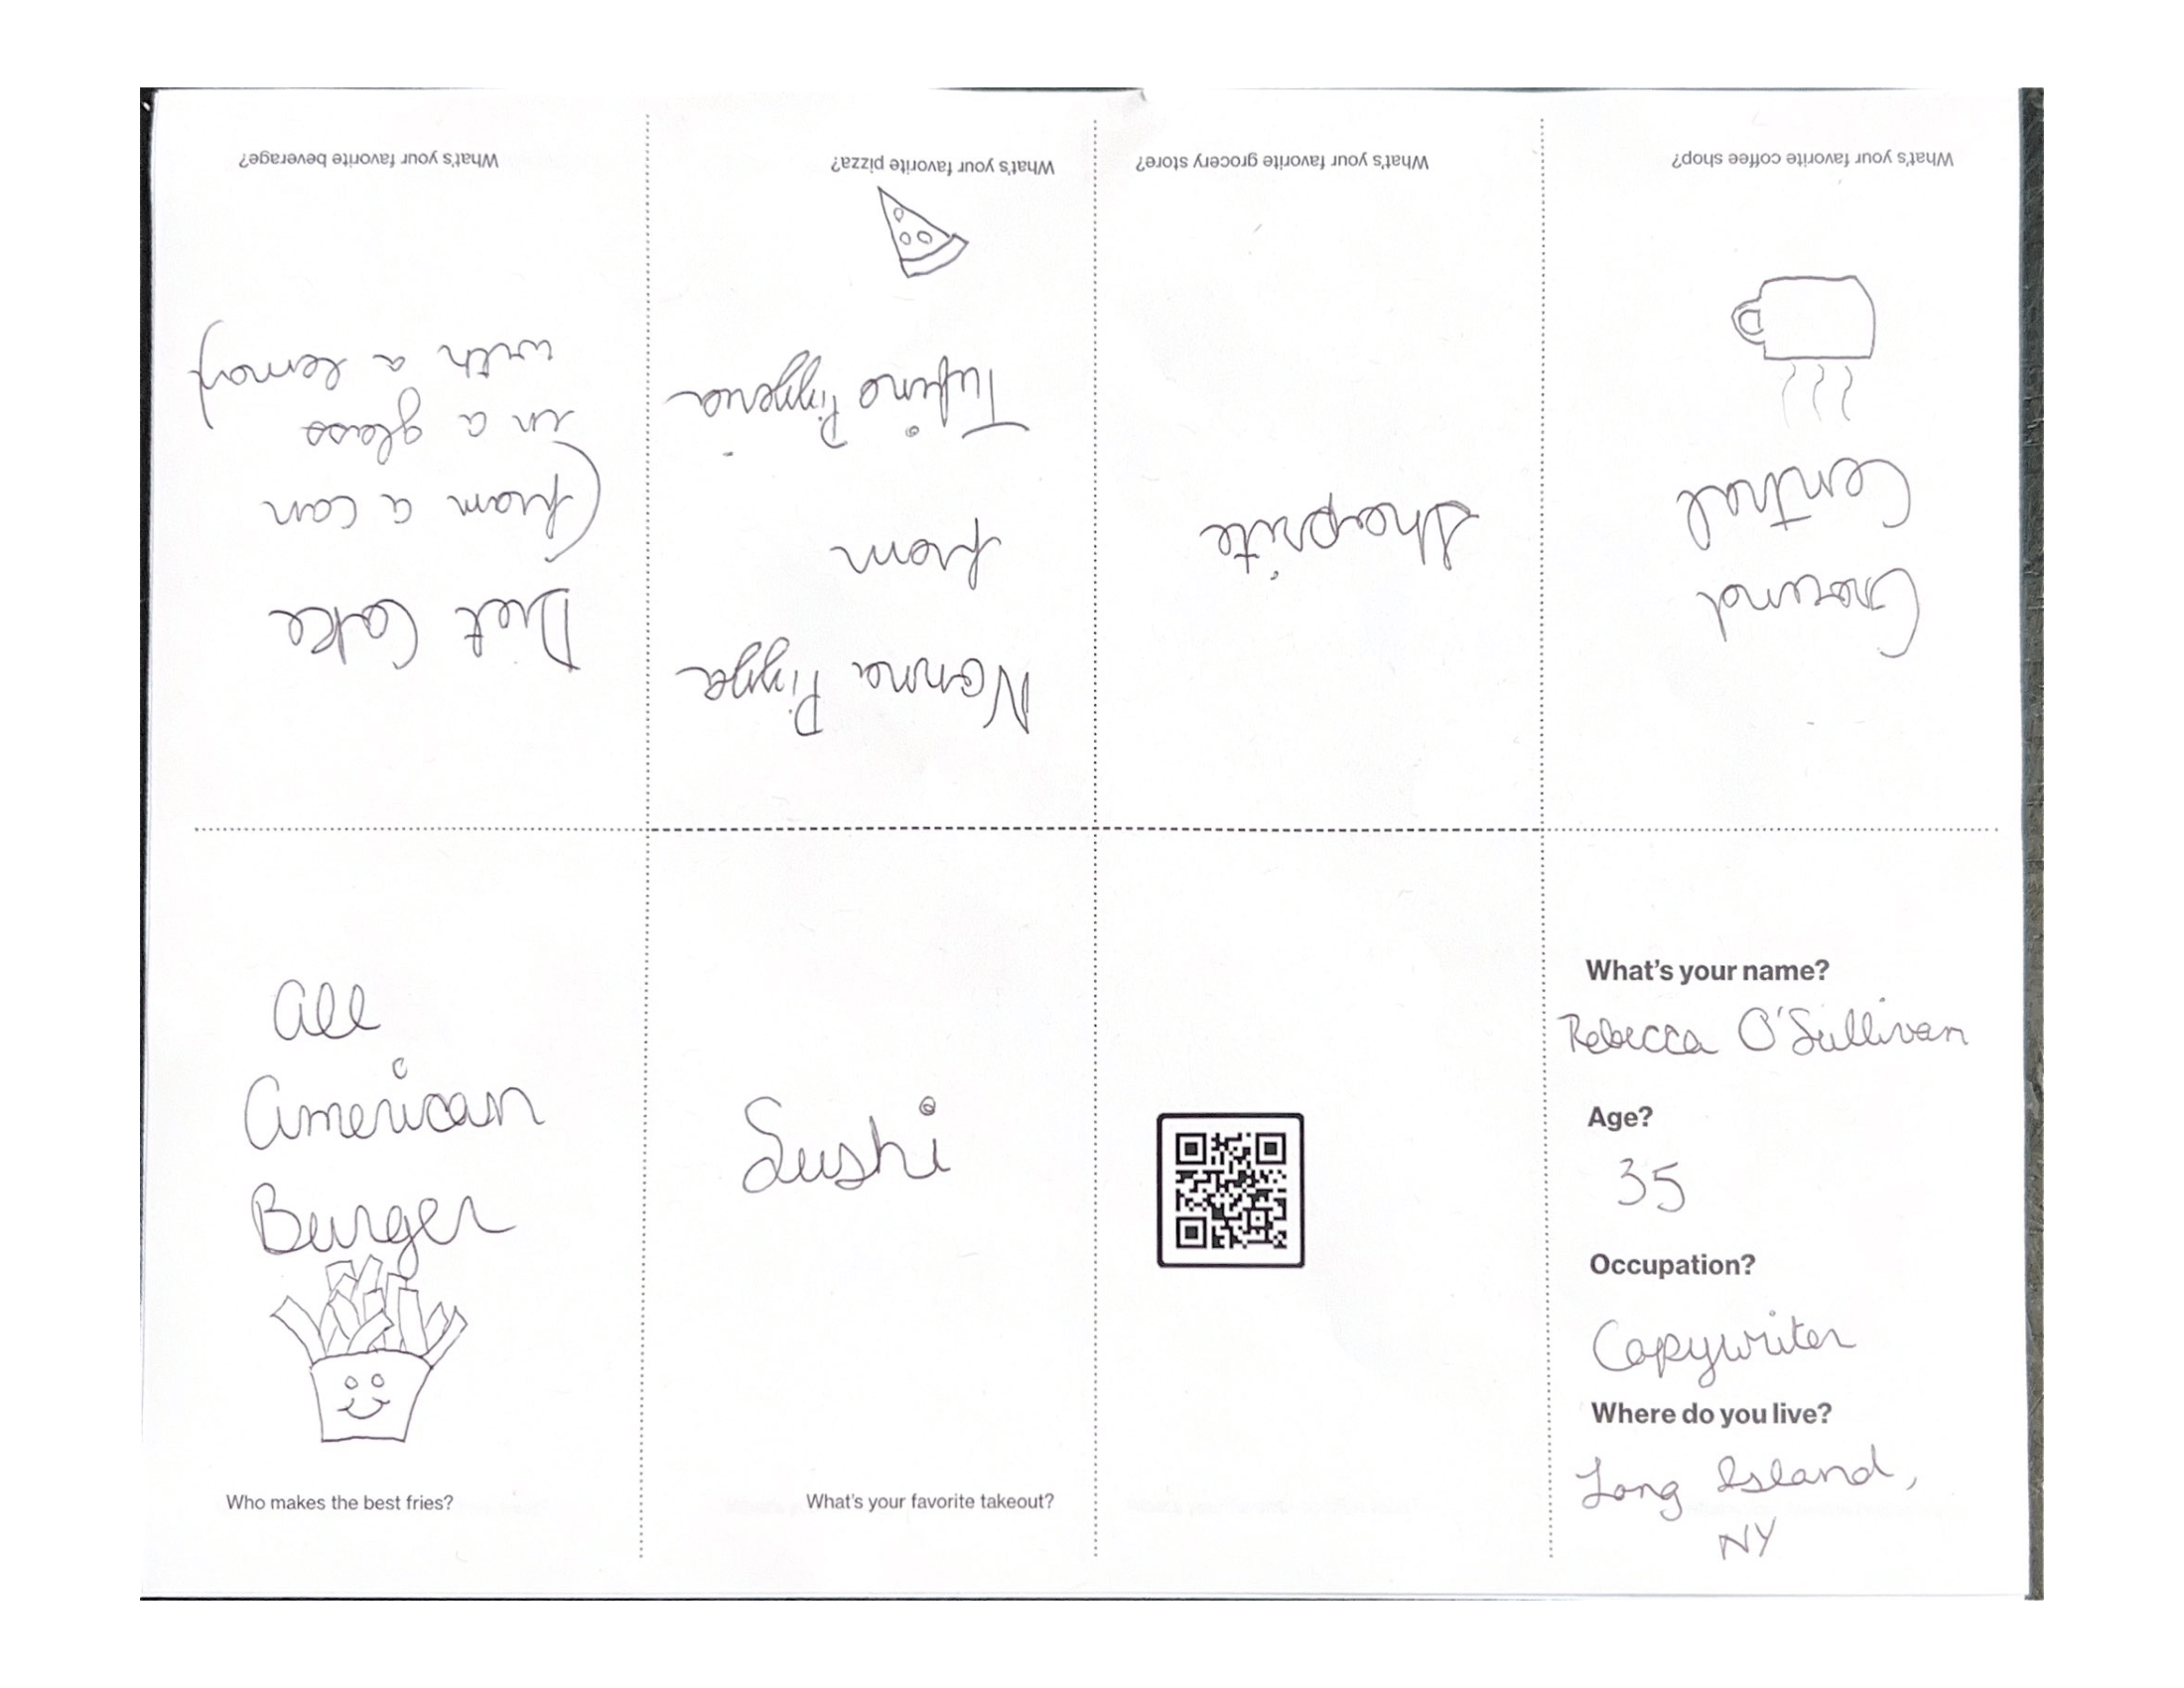 What's your favorite beverage?
Diet Coke
(from a can
in a glass
with a lemon)
What's your favorite pizza?
Nonna Pizza
from
Tufino Pizzeria
What's your favorite grocery store?
Shoprite
What's your favorite coffee shop?
Ground
Central
all
american
Burger
Who makes the best fries?
Sushi
What's your favorite takeout?
What's your name?
Rebecca O'Sullivan
Age?
35
Occupation?
Copywriter
Where do you live?
Long Island,
NY